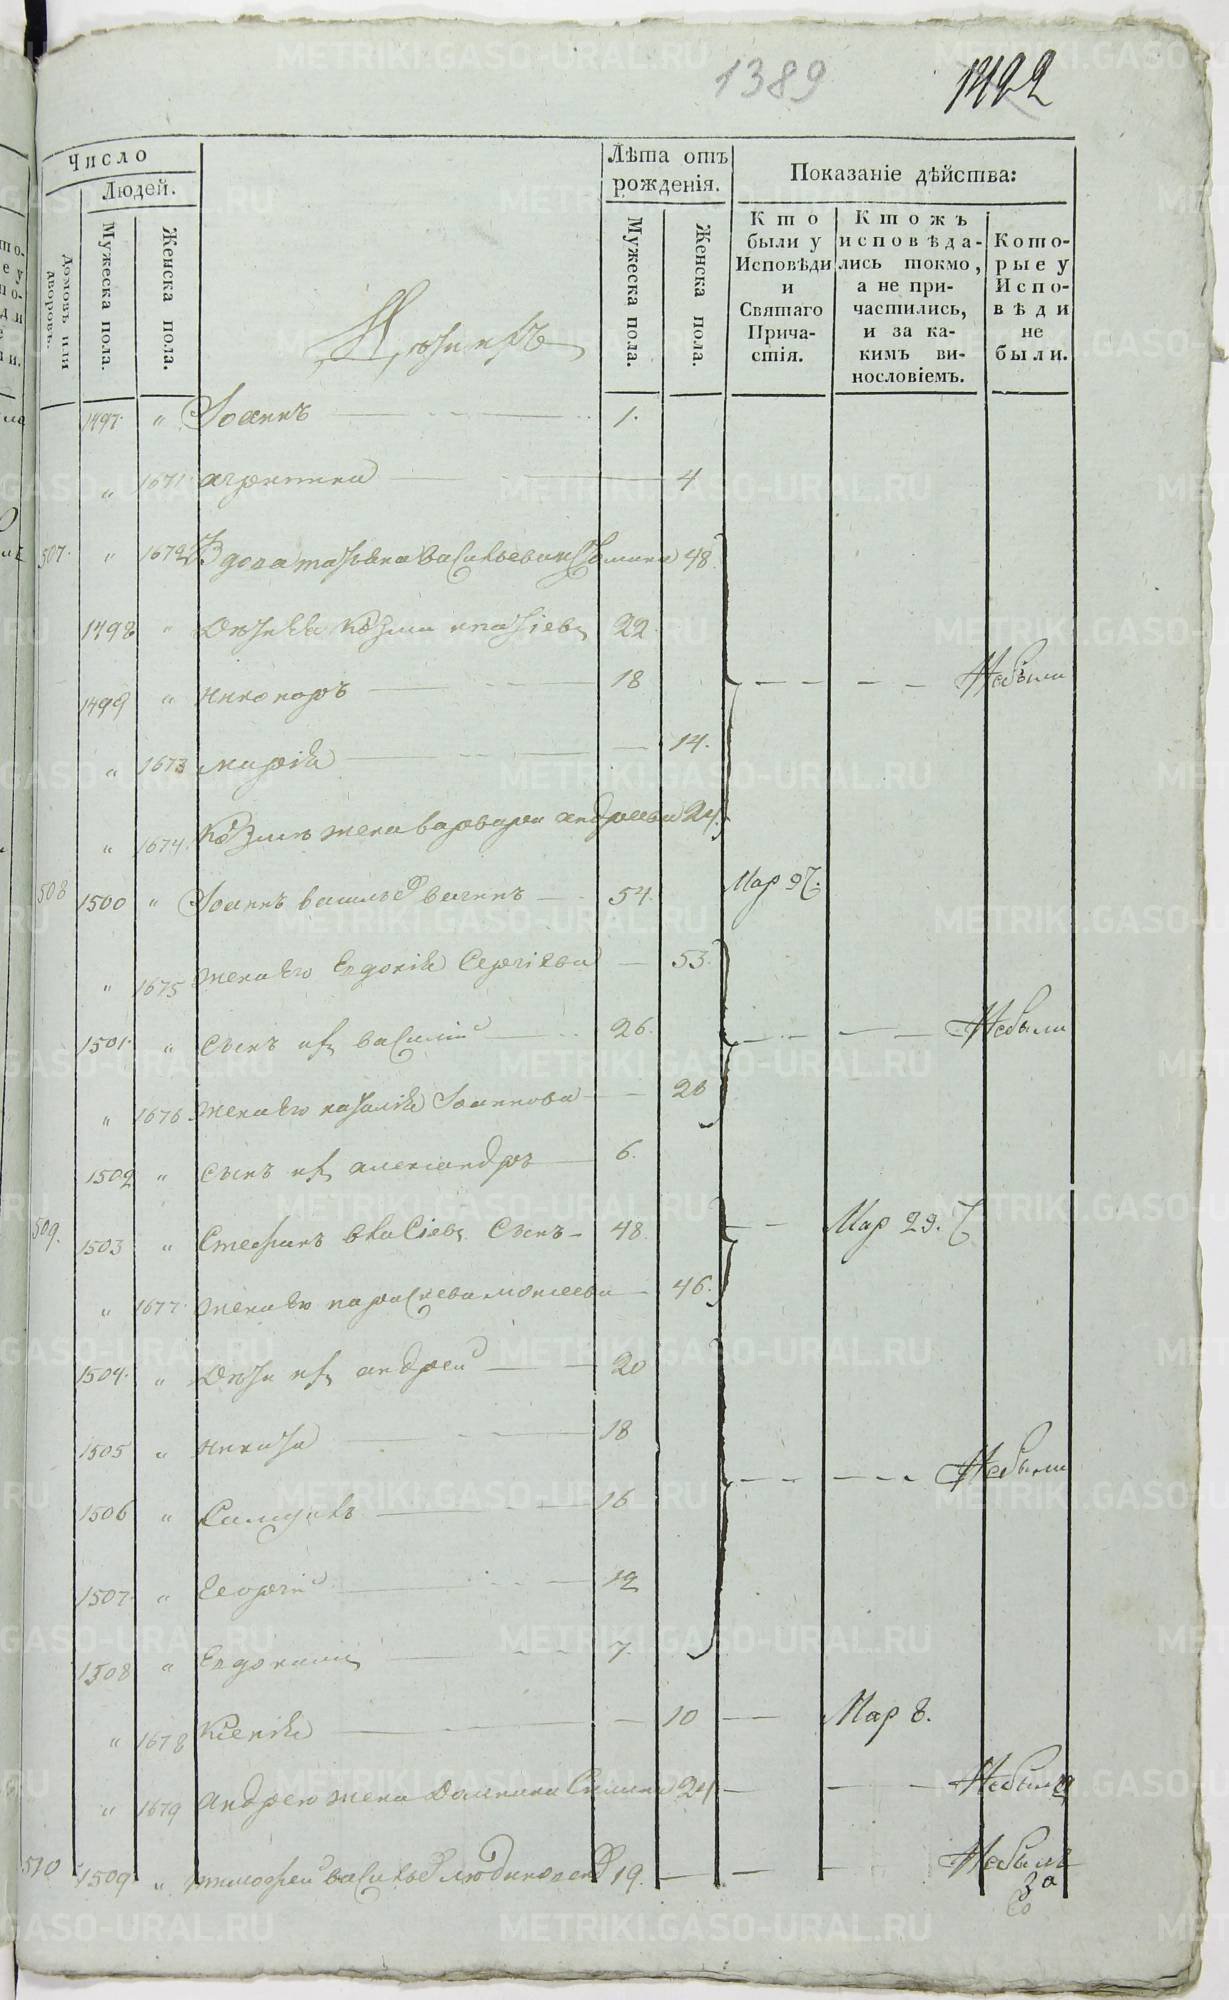 1389
1422
Число
Людей.
Домовъ или дворовъ.
Мужеска пола.
Женска пола.
Лѣта отъ рожденія.
Мужеска пола.
Женска пола.
Показаніе дѣйства:
Кто были у Исповѣди и Святаго Причастія.
Ктожъ исповѣдались токмо, а не причастились, и за какимъ винословіемъ.
Которые у Исповѣди не были.
1497. " Іоаннъ 1.
" 1671 агрипина 4
507. " 1672 Вдова татьяна васильевна 48
1498 " Дѣти Ея Козма 22
1499 " никаноръ 18 Небыли
" 1673 марія 14.
" 1674. Козмы жена варвара андреева 24.
508 1500 " Іоаннъ васильевъ 54. Мар 27.
" 1675 жена Его Евдокія Сергіева 53.
1501. " Сынъ их василий 26. Небыли
" 1676 жена Его наталія Іоаннова 26
1502 " Сынъ их александръ 6.
509. 1503 " Стефанъ 48. Мар 29.
" 1677. жена Его параскева моисеева 46.
1504. " Дѣти их андрей 20
1505 " никита 18
1506 " Самуилъ 16 Небыли
1507. " Георгий 12
1508 " Евдокимъ 7.
" 1678 Ксенія 10 Мар 8.
" 1679 андрею жена Домника 24 Небыла
510 1509. " тимофей васильевъ 19. Небылъ